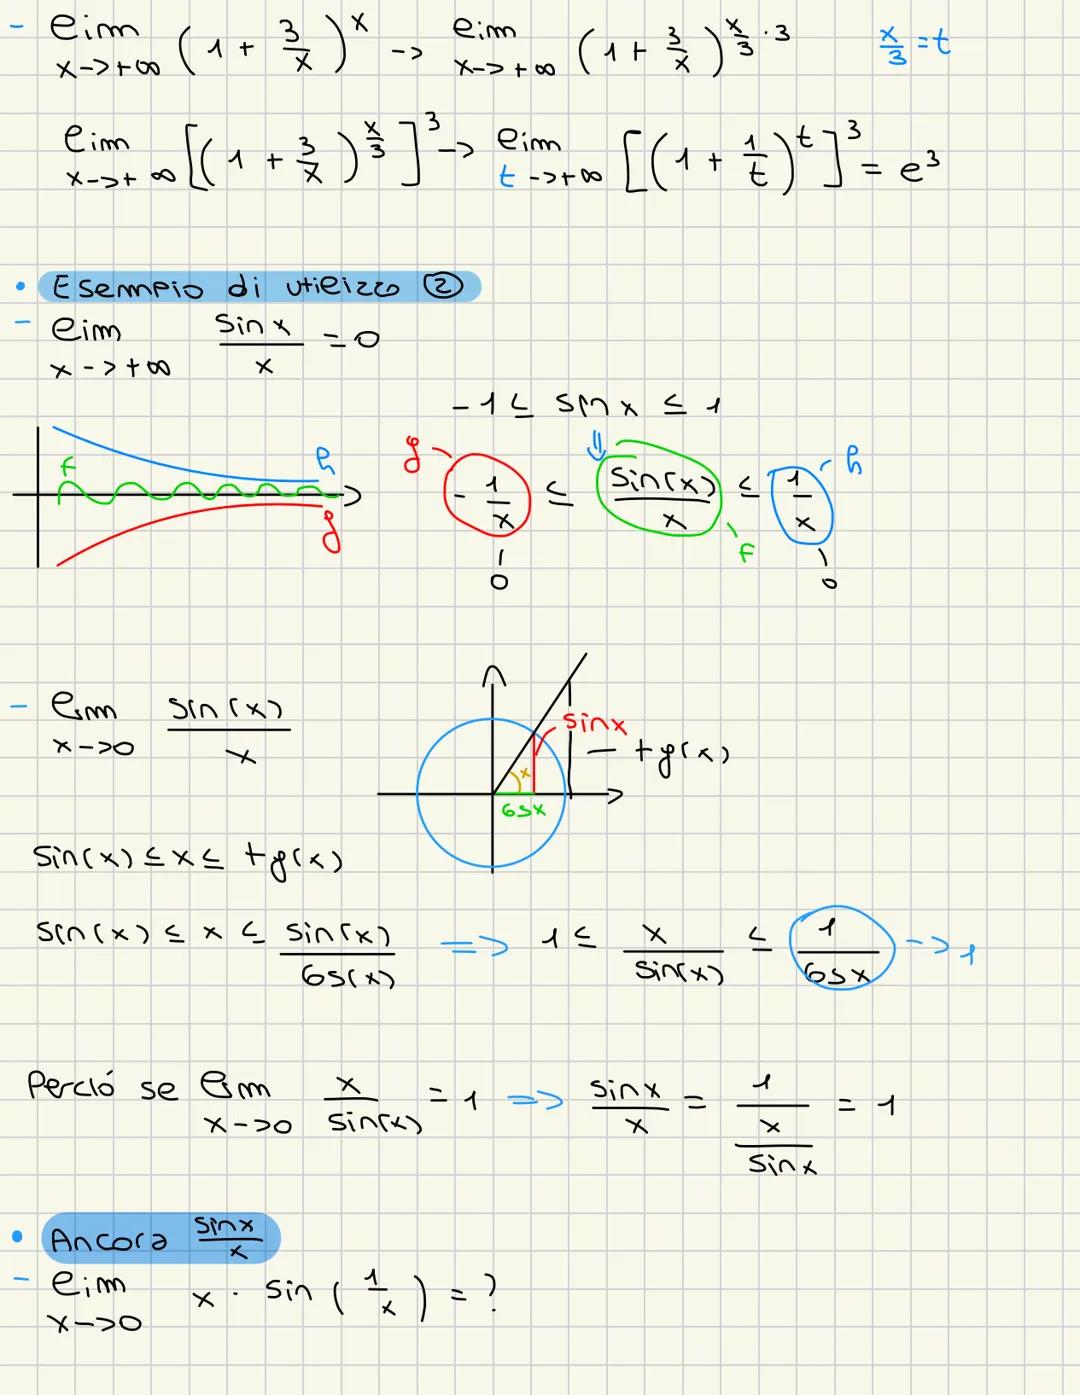 - lim x->+∞ (1 + 3/x)^x -> lim x->+∞ (1 + 3/x)^(x/3 · 3) x/3 = t
lim x->+∞ [(1 + 3/x)^(x/3)]^3 -> lim t->+∞ [(1 + 1/t)^t]^3 = e^3
• Esempio di utilizzo ②
- lim x->+∞ sin x / x = 0
-1 ≤ sin x ≤ 1
⇓
f h g
g -1/x ≤ sin(x)/x ≤ 1/x h
f
0 0
- lim x->0 sin(x)/x
sinx - tg(x)
x
cosx
sin(x) ≤ x ≤ tg(x)
sin(x) ≤ x ≤ sin(x)/cos(x) => 1 ≤ x/sin(x) ≤ 1/cosx -> 1
Perció se lim x->0 x/sin(x) = 1 => sinx/x = 1/(x/sinx) = 1
• Ancora sinx/x
- lim x->0 x · sin(1/x) = ?